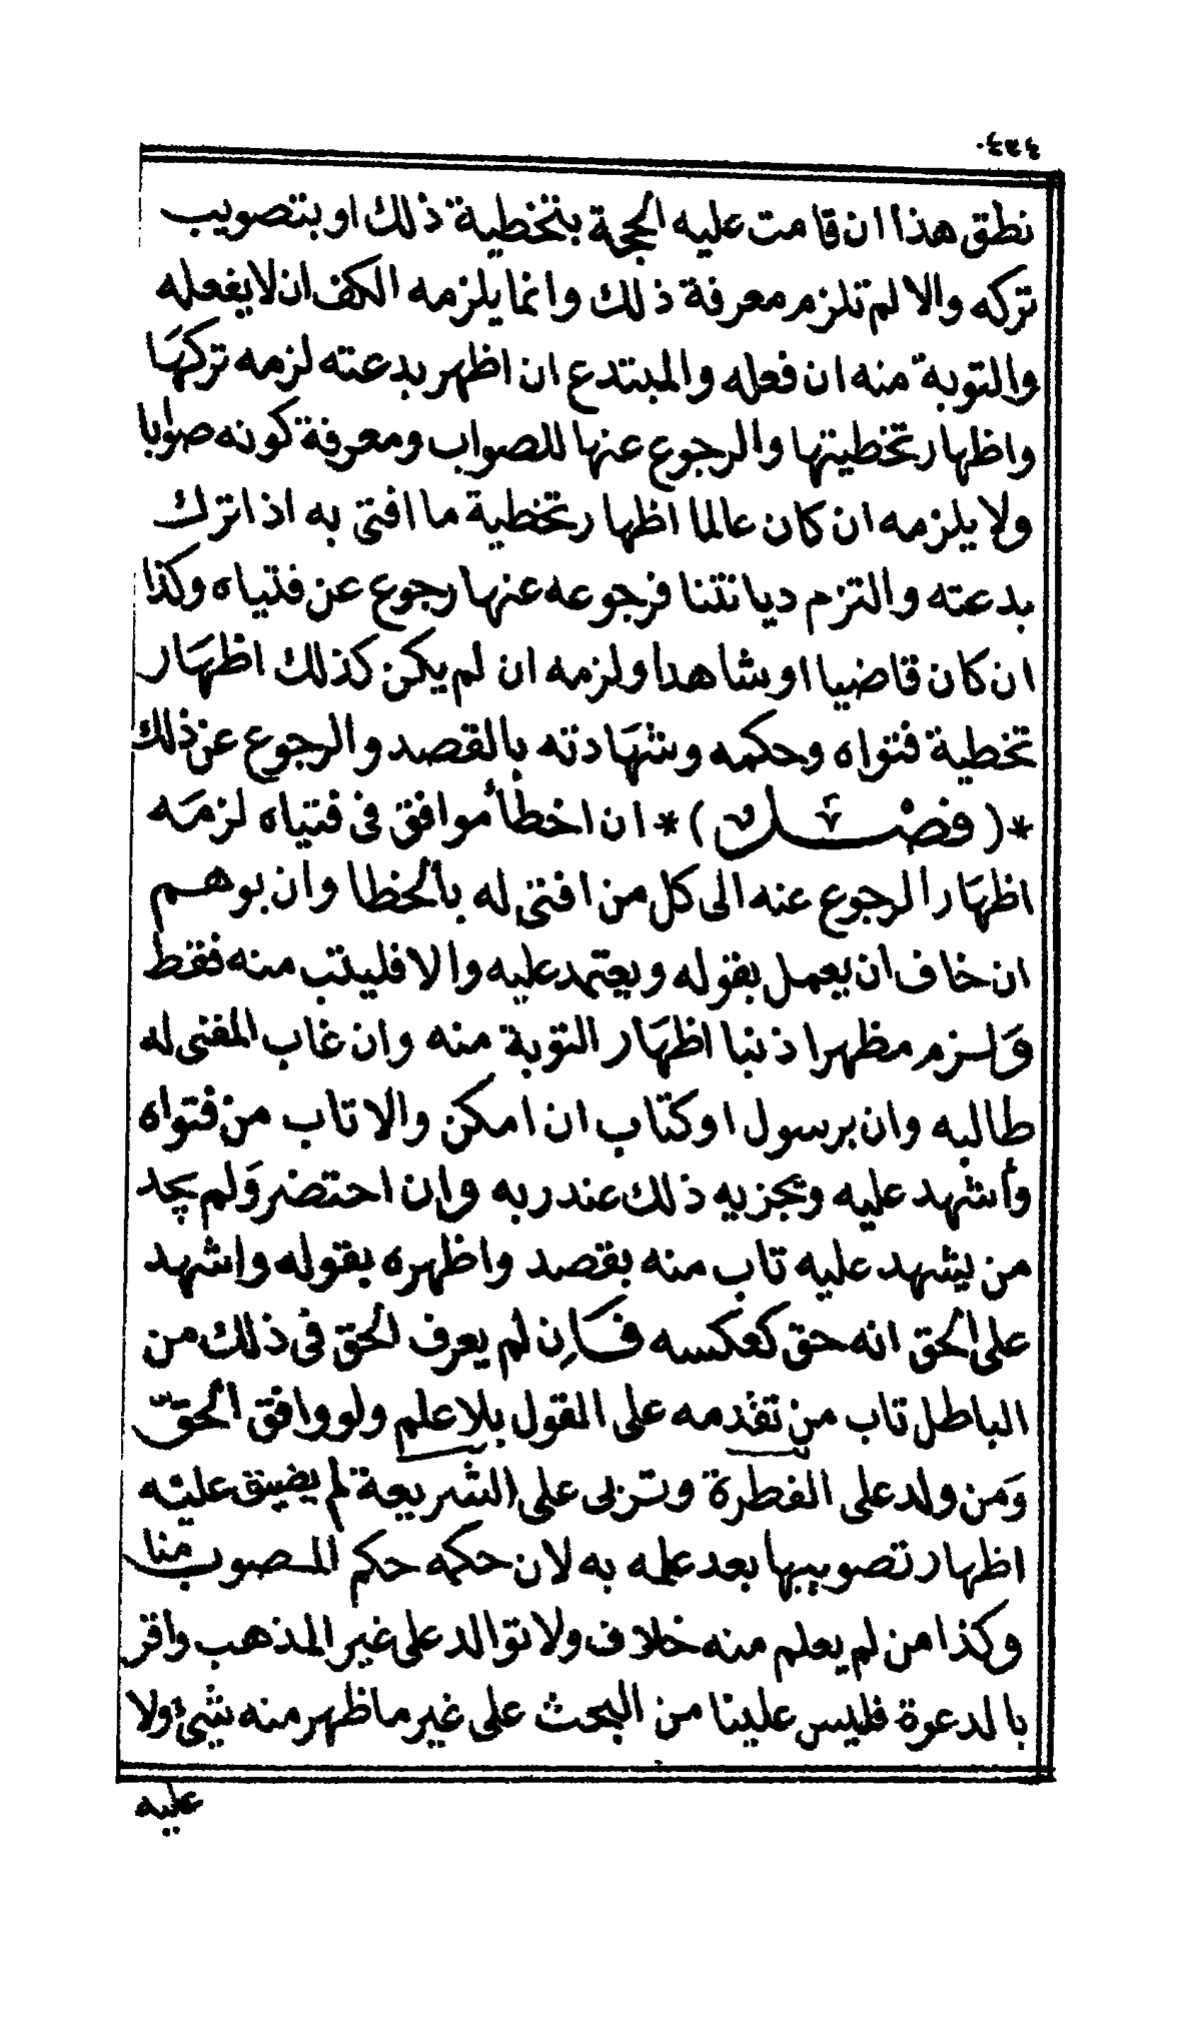 نطق هذا ان قامت عليه الحجة بتخطية ذلك او بتصويب
تركه والا لم تلزم معرفة ذلك وانما يلزمه الكف ان لا يفعله
والتوبة منه ان فعله والمبتدع ان اظهر بدعته لزمه تركها
واظهار تخطيتها والرجوع عنها للصواب ومعرفة كونه صوابا
ولا يلزمه ان كان عالما اظهار تخطية ما افتى به اذا ترك
بدعته والتزم ديانتنا فرجوعه عنها رجوع عن فتياه وكذا
ان كان قاضيا او شاهدا ولزمه ان لم يكن كذلك اظهار
تخطية فتواه وحكمه وشهادته بالقصد والرجوع عن ذلك
*(فصل)* ان اخطأ موافق فى فتياه لزمه
اظهار الرجوع عنه الى كل من افتى له بالخطا وان بوهم
ان خاف ان يعمل بقوله ويعتمد عليه والا فليتب منه فقط
ولزم مظهرا ذنبا اظهار التوبة منه وان غاب المفتى له
طالبه وان برسول او كتاب ان امكن والا تاب من فتواه
وأشهد عليه ويجزيه ذلك عند ربه وإن احتضر ولم يجد
من يشهد عليه تاب منه بقصد واظهره بقوله واشهد
على الحق انه حق كعكسه فإن لم يعرف الحق فى ذلك من
الباطل تاب من تقدمه على القول بلا علم ولو وافق الحق
ومن ولد على الفطرة وتربى على الشريعة لم يضيق عليه
اظهار تصويبها بعد علمه به لان حكمه حكم المصوب منا
وكذا من لم يعلم منه خلاف ولا توالد على غير المذهب واقر
بالدعوة فليس علينا من البحث على غير ما ظهر منه شئ ولا
عليه